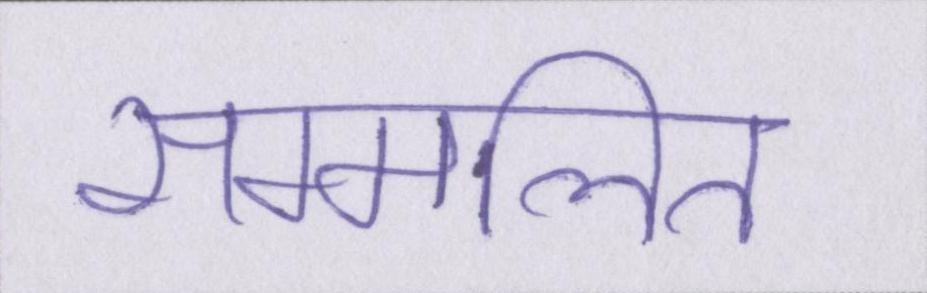 सम्मलित